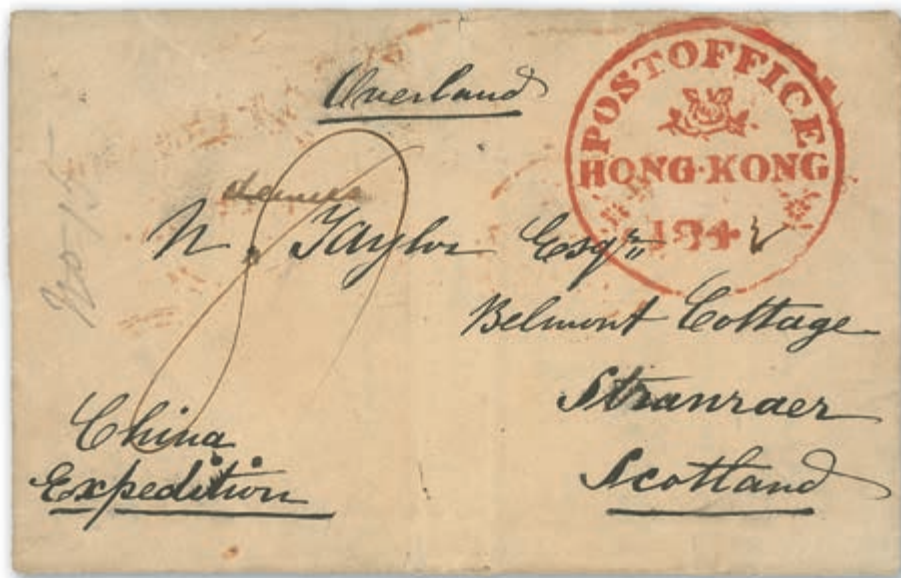 Overland
POST OFFICE
HONG·KONG
184
N. Taylor Esqr
Belmont Cottage
Stranraer
Scotland
China
Expedition
No 15